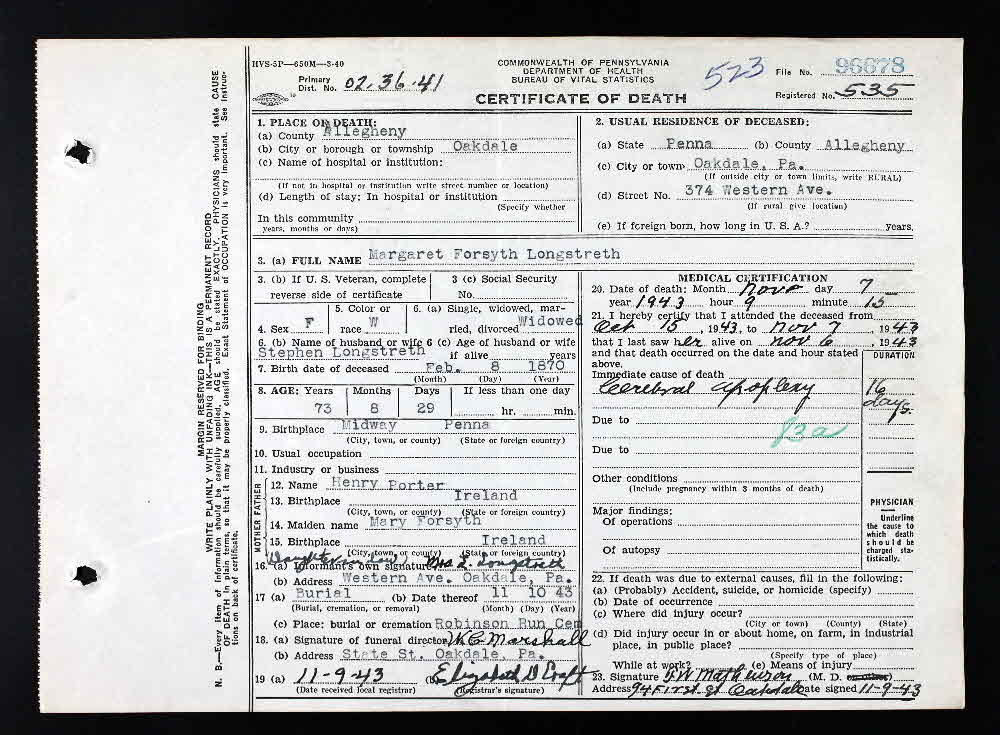 HVS-5P—650M—3-40
COMMONWEALTH OF PENNSYLVANIA
DEPARTMENT OF HEALTH
BUREAU OF VITAL STATISTICS
Primary Dist. No. 02.36.41
523
File No. 96678
Registered No. 535
CERTIFICATE OF DEATH
MARGIN RESERVED FOR BINDING
WRITE PLAINLY WITH UNFADING INK—THIS IS A PERMANENT RECORD
N. B.—Every item of information should be carefully supplied. AGE should be stated EXACTLY. PHYSICIANS should state CAUSE
OF DEATH in plain terms, so that it may be properly classified. Exact Statement of OCCUPATION is very important. See instruc-
tions on back of certificate.
1. PLACE OF DEATH:
(a) County Allegheny
(b) City or borough or township Oakdale
(c) Name of hospital or institution:
(If not in hospital or institution write street number or location)
(d) Length of stay: In hospital or institution
(Specify whether
In this community
years, months or days)
2. USUAL RESIDENCE OF DECEASED:
(a) State Penna (b) County Allegheny
(c) City or town Oakdale, Pa.
(If outside city or town limits, write RURAL)
(d) Street No. 374 Western Ave.
(If rural give location)
(e) If foreign born, how long in U. S. A.? years.
3. (a) FULL NAME Margaret Forsyth Longstreth
3. (b) If U. S. Veteran, complete
reverse side of certificate
3 (c) Social Security
No.
4. Sex F
5. Color or
race W
6. (a) Single, widowed, mar-
ried, divorced Widowed
6. (b) Name of husband or wife
Stephen Longstreth
6 (c) Age of husband or wife
if alive years
7. Birth date of deceased Feb. 8 1870
(Month) (Day) (Year)
8. AGE: Years Months Days If less than one day
73 8 29 hr. min.
9. Birthplace Midway Penna
(City, town, or county) (State or foreign country)
10. Usual occupation
11. Industry or business
FATHER
12. Name Henry Porter
13. Birthplace Ireland
(City, town, or county) (State or foreign country)
MOTHER
14. Maiden name Mary Forsyth
15. Birthplace Ireland
(City, town, or county) (State or foreign country)
Daughter in law
16. (a) Informant's own signature Mrs L. Longstreth
(b) Address Western Ave. Oakdale, Pa.
17 (a) Burial (b) Date thereof 11 10 43
(Burial, cremation, or removal) (Month) (Day) (Year)
(c) Place: burial or cremation Robinson Run Cem
18. (a) Signature of funeral director W. C. Marshall
(b) Address State St. Oakdale, Pa.
19 (a) 11-9-43 (b) Elizabeth D Craft
(Date received local registrar) (Registrar's signature)
MEDICAL CERTIFICATION
20. Date of death: Month Nov. day 7
year 1943 hour 9 minute 15
21. I hereby certify that I attended the deceased from
Oct 15, 1943, to Nov 7 1943
that I last saw her alive on Nov 6 1943
and that death occurred on the date and hour stated
above.
DURATION
Immediate cause of death
Cerebral apoplexy
16 days.
Due to
83a
Due to
Other conditions
(Include pregnancy within 3 months of death)
Major findings:
Of operations
Of autopsy
PHYSICIAN
Underline
the cause to
which death
should be
charged sta-
tistically.
22. If death was due to external causes, fill in the following:
(a) (Probably) Accident, suicide, or homicide (specify)
(b) Date of occurrence
(c) Where did injury occur?
(City or town) (County) (State)
(d) Did injury occur in or about home, on farm, in industrial
place, in public place?
(Specify type of place)
While at work? (e) Means of injury
23. Signature F. W. Mathewson (M. D. or other)
Address 94 First St Oakdale Date signed 11-9-43